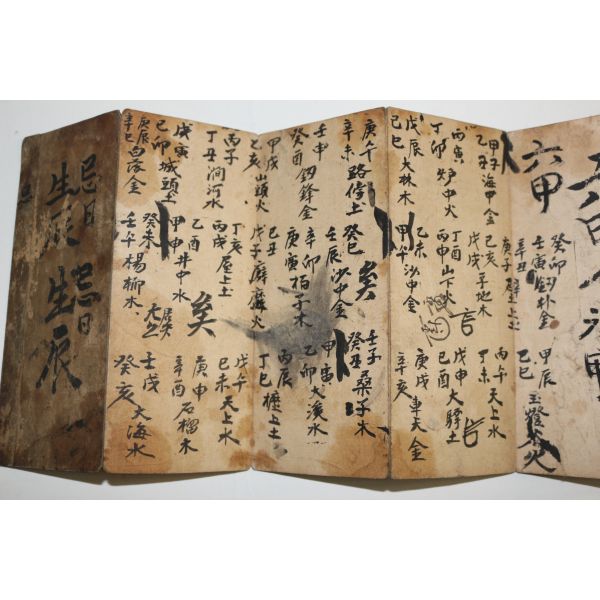 六甲
甲子 海中金
乙丑
丙寅
丁卯 炉中火
戊辰 大林木
己巳
庚午 路傍土
辛未
壬申
癸酉 釼鋒金
甲戌 山頭火
乙亥
丙子
丁丑 澗河水
戊寅
己卯 城頭土
庚辰
辛巳 金
癸卯
壬寅 金
辛丑
庚子 壁上土
己亥
戊戌 地木
丁酉 山下火
丙申
乙未
甲午 沙中金
癸巳
壬辰 沙中金
辛卯 栢子木
庚寅
己丑
戊子 火
丁亥
丙戌 屋上土
乙酉
甲申 井中水
癸未
壬午 楊柳木
矣
矣
吉
吉
甲辰
乙巳 玉燈火
丙午 天上水
丁未
戊申 大驛土
己酉
庚戌 車天金
辛亥
壬子 桑子木
癸丑
甲寅 大溪水
乙卯
丙辰 上土
丁巳
戊午 天上水
己未
庚申 石榴木
辛酉
壬戌
癸亥 大海水
忌日
忌日
生辰
生辰